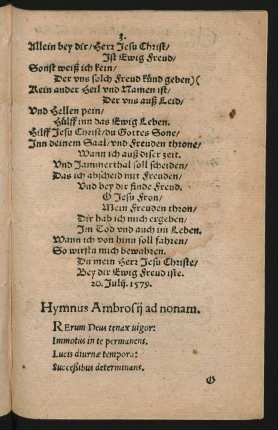 3.
Allein bey dir/Herr Jesu Christ/
Ist Ewig Freud/
Sonst weiß ich kein/
Der vns solch Freud künd geben)(
Kein ander Heil vnd Namen ist/
Der vns auß Leid/
Vnd Hellen pein/
Hülff inn das Ewig Leben.
Hilff Jesu Christ/du Gottes Sone/
Inn deinem Saal/vnd Freuden throne/
Wann ich auß diser zeit.
Vnd Jammerthal soll scheiden/
Das ich abscheid mit Freuden/
Vnd bey dir finde Freud.
O Jesu Fron/
Mein Freuden thron/
Dir hab ich mich ergeben/
Im Tod vnd auch im Leben.
Wann ich von hinn soll fahren/
So wirstu mich bewahren.
Du mein Herr Jesu Christe/
Bey dir Ewig Freud iste.
20. Julij. 1579.
Hymnus Ambrosij ad nonam.
RErum Deus tenax vigor:
Immotus in te permanens.
Lucis diurnæ tempora:
Successibus determinans.
O